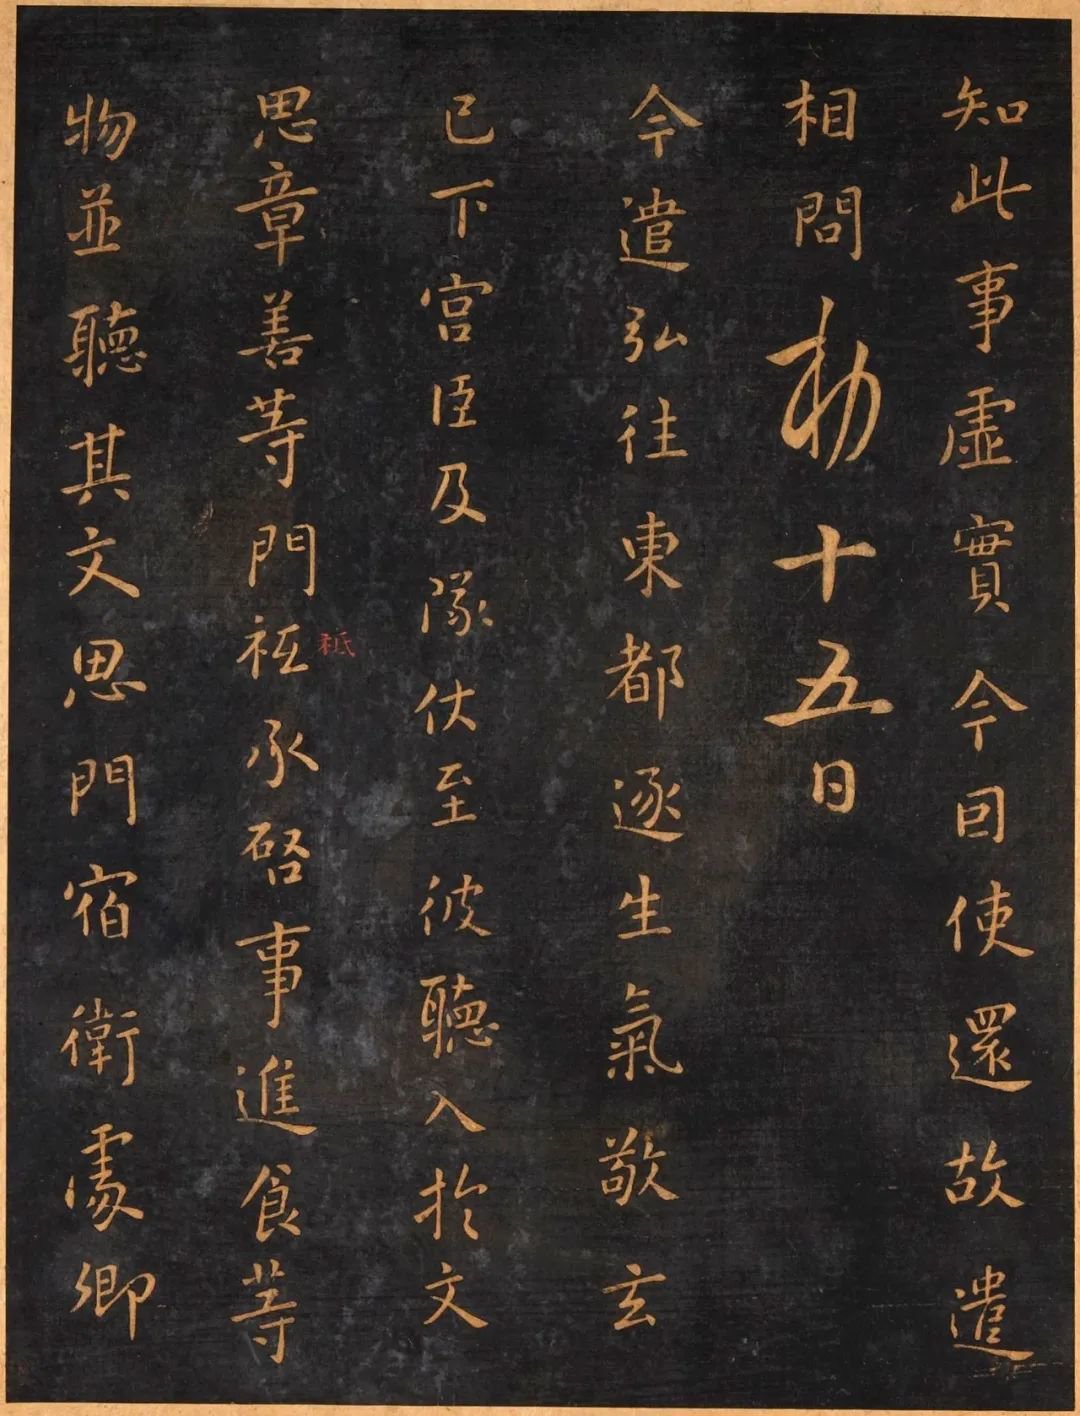 知此事虛實今囙使還故遣
相問敕十五日
今遣弘往東都逐生氣敬玄
已下宮臣及隊仗至彼聽入於文
思章善等門祗承啓事進食等
祗
物並聽其文思門宿衛處卿